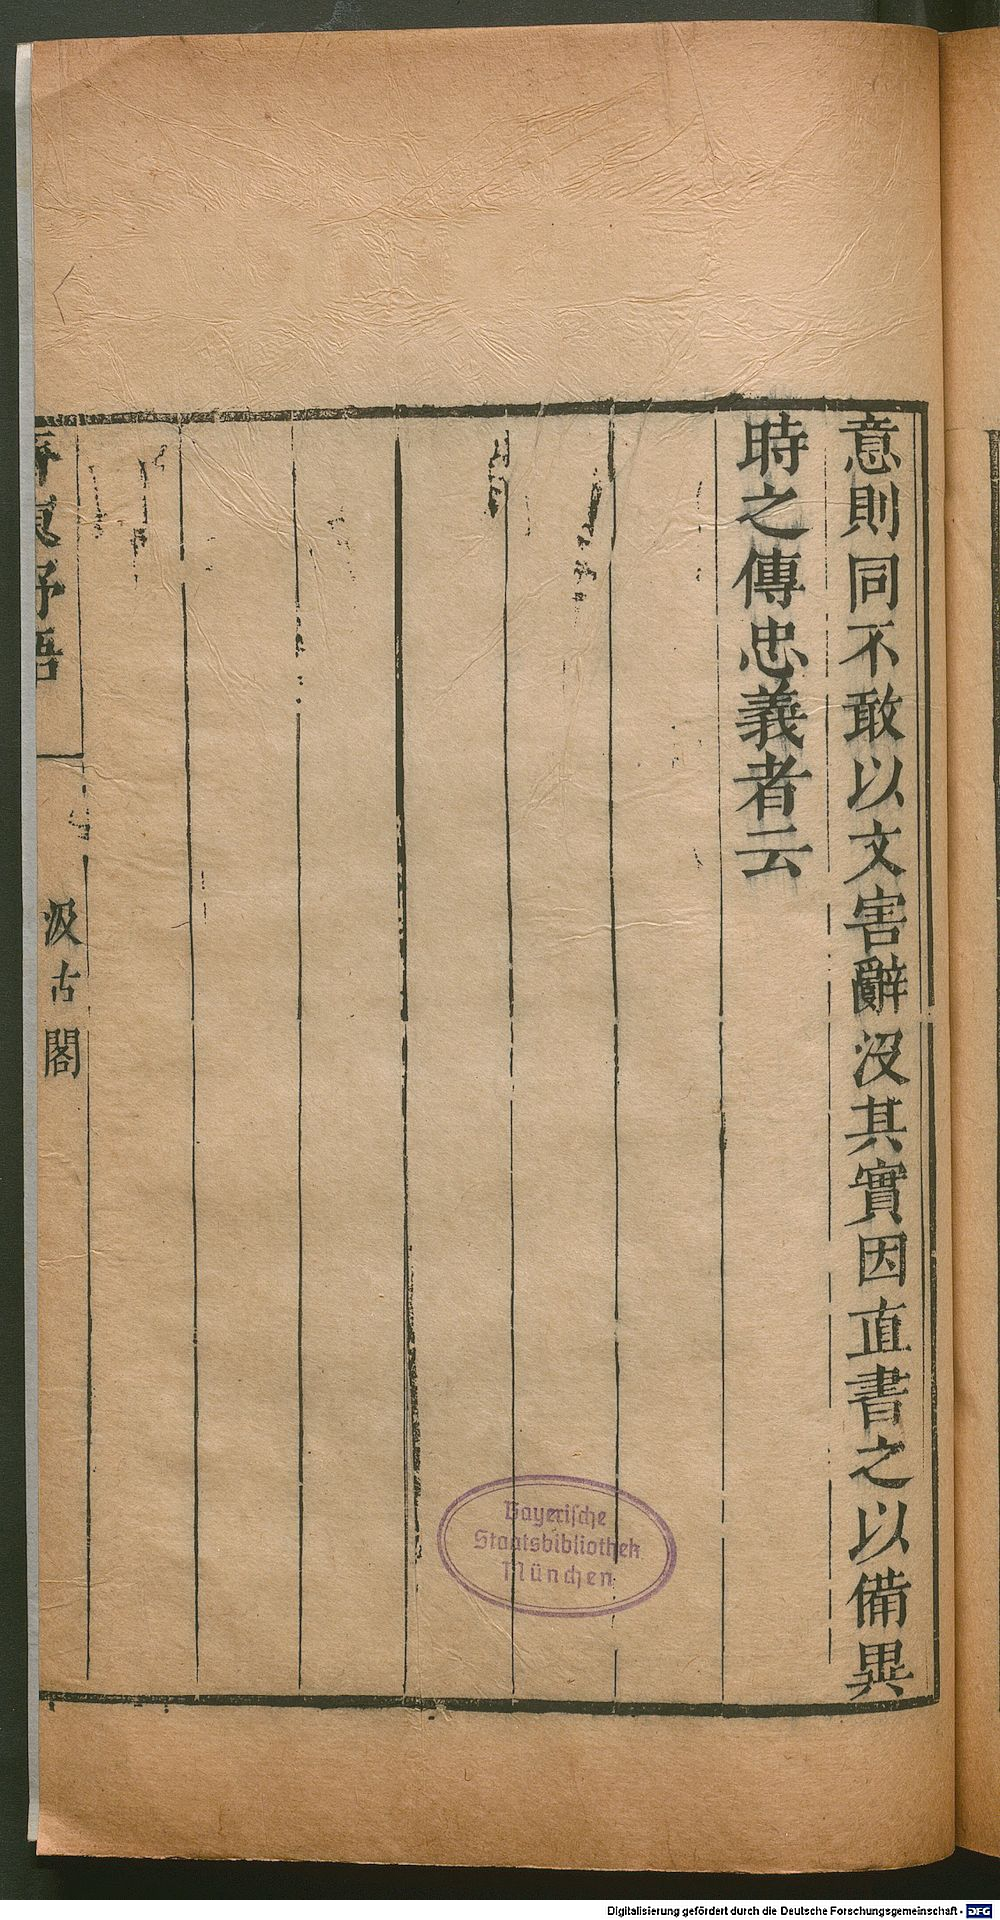 意則同不敢以文害辭沒其實因直書之以備異
時之傳忠義者云
齊東野語
汲古閣
Bayerische
Staatsbibliothek
München
Digitalisierung gefördert durch die Deutsche Forschungsgemeinschaft - DFG